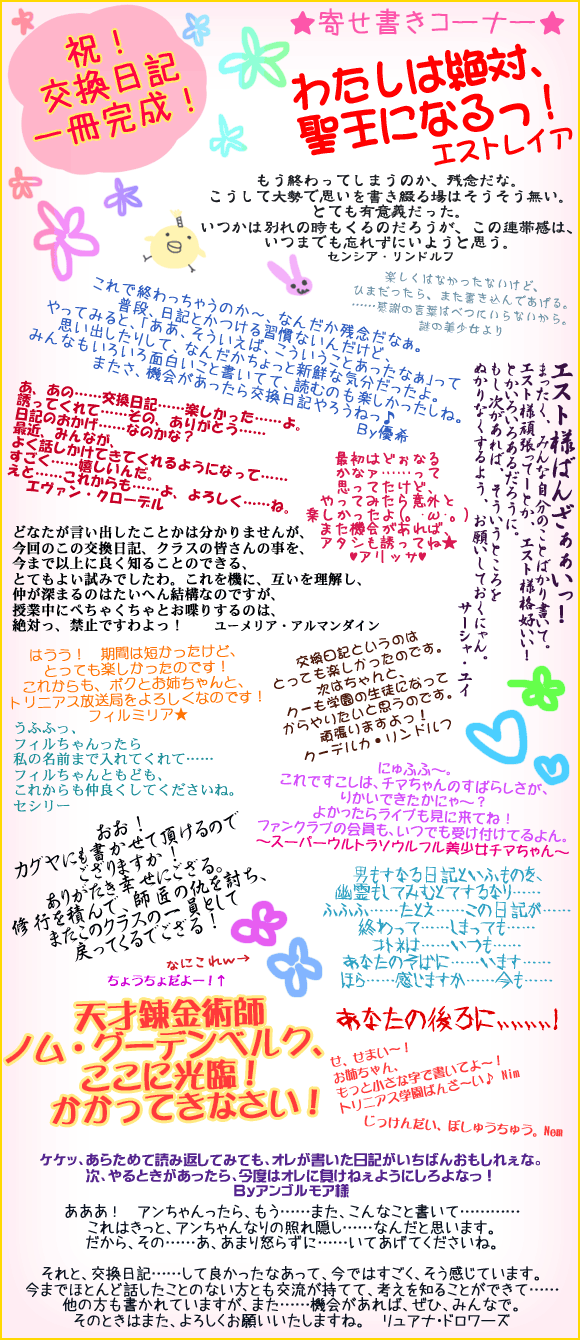 祝！
交換日記
一冊完成！
★寄せ書きコーナー★
わたしは絶対、
聖王になるっ！
エストレイア
もう終わってしまうのか、残念だな。
こうして大勢で思いを書き綴る場はそうそう無い。
とても有意義だった。
いつかは別れの時もくるのだろうが、この連帯感は、
いつまでも忘れずにいようと思う。
センシア・リンドルフ
楽しくはなかったないけど、
ひまだったら、また書き込んであげる。
……感謝の言葉はべつにいらないから。
謎の美少女より
これで終わっちゃうのか～、なんだか残念だなぁ。
普段、日記とかつける習慣ないんだけど、
やってみると、「ああ、そういえば、こういうことあったなぁ」って
思い出したりして、なんだかちょっと新鮮な気分だったよ。
みんなもいろいろ面白いこと書いてて、読むのも楽しかったしね。
またさ、機会があったら交換日記やろうねっ♪
By優希
エスト様ばんざぁぁいっ！
まったく、みんな自分のことばかり書いて。
エスト様頑張ってーとか、エスト様格好いい！
とかいろいろあるだろうに。
もし次があれば、そういうところを
ぬかりなくするよう、お願いしておくにゃん。
サーシャ・エイ
あ、あの……交換日記……楽しかった……よ。
誘ってくれて……その、ありがとう……
日記のおかげ……なのかな？
最近、みんなが、
よく話しかけてきてくれるようになって……
すごく……嬉しいんだ。
えと……これからも……よ、よろしく……ね。
エヴァン・クローデル
最初はどぉなる
かなァ……って
思ってたけど、
やってみたら意外と
楽しかったよ(｡･ω･｡)
また機会があれば、
アタシも誘ってね★
♥アリッサ♥
どなたが言い出したことかは分かりませんが、
今回のこの交換日記、クラスの皆さんの事を、
今まで以上に良く知ることのできる、
とてもよい試みでしたわ。これを機に、互いを理解し、
仲が深まるのはたいへん結構なのですが、
授業中にぺちゃくちゃとお喋りするのは、
絶対っ、禁止ですわよっ！　　ユーメリア・アルマンダイン
はうう！　期間は短かったけど、
とっても楽しかったのです！
これからも、ボクとお姉ちゃんと、
トリニアス放送局をよろしくなのです！
フィルミリア★
交換日記というのは
とっても楽しかったのです。
次はちゃんと、
クーも学園の生徒になって
からやりたいと思うのです。
頑張りますよっ！
クーデルカ・リンドルフ
うふふっ、
フィルちゃんったら
私の名前まで入れてくれて……
フィルちゃんともども、
これからも仲良くしてくださいね。
セシリー
にゅふふ～。
これですこしは、チマちゃんのすばらしさが、
りかいできたかにゃ～？
よかったらライブも見に来てね！
ファンクラブの会員も、いつでも受け付けてるよん。
～スーパーウルトラソウルフル美少女チマちゃん～
おお！
カグヤにも書かせて頂けるので
ござりますか！
ありがたき幸せにござる。
修行を積んで、師匠の仇を討ち、
またこのクラスの一員として
戻ってくるでござる！
男もすなる日記といふものを、
幽霊もしてみむとてするなり……
ふふふ……たとえ……この日記が……
終わって……しまっても……
コトネは……いつも……
あなたのそばに……います……
ほら……感じますか……今も……
あなたの後ろにぃぃぃぃぃ!
なにこれw→
ちょうちょだよー！↑
天才錬金術師
ノム・グーデンベルク、
ここに光臨！
かかってきなさい！
せ、せまい～！
お姉ちゃん、
もっと小さな字で書いてよ～！
トリニアス学園ばんざ～い♪ Nim
じっけんだい、ぼしゅうちゅう。Nom
ケケッ、あらためて読み返してみても、オレが書いた日記がいちばんおもしれぇな。
次、やるときがあったら、今度はオレに負けねぇようにしろよなっ！
Byアンゴルモア様
あああ！　アンちゃんったら、もう……また、こんなこと書いて…………
これはきっと、アンちゃんなりの照れ隠し……なんだと思います。
だから、その……あ、あまり怒らずに……いてあげてくださいね。
それと、交換日記……して良かったなあって、今ではすごく、そう感じています。
今までほとんど話したことのない方とも交流が持てて、考えを知ることができて……
他の方も書かれていますが、また……機会があれば、ぜひ、みんなで。
そのときはまた、よろしくお願いいたしますね。　リュアナ・ドロワーズ